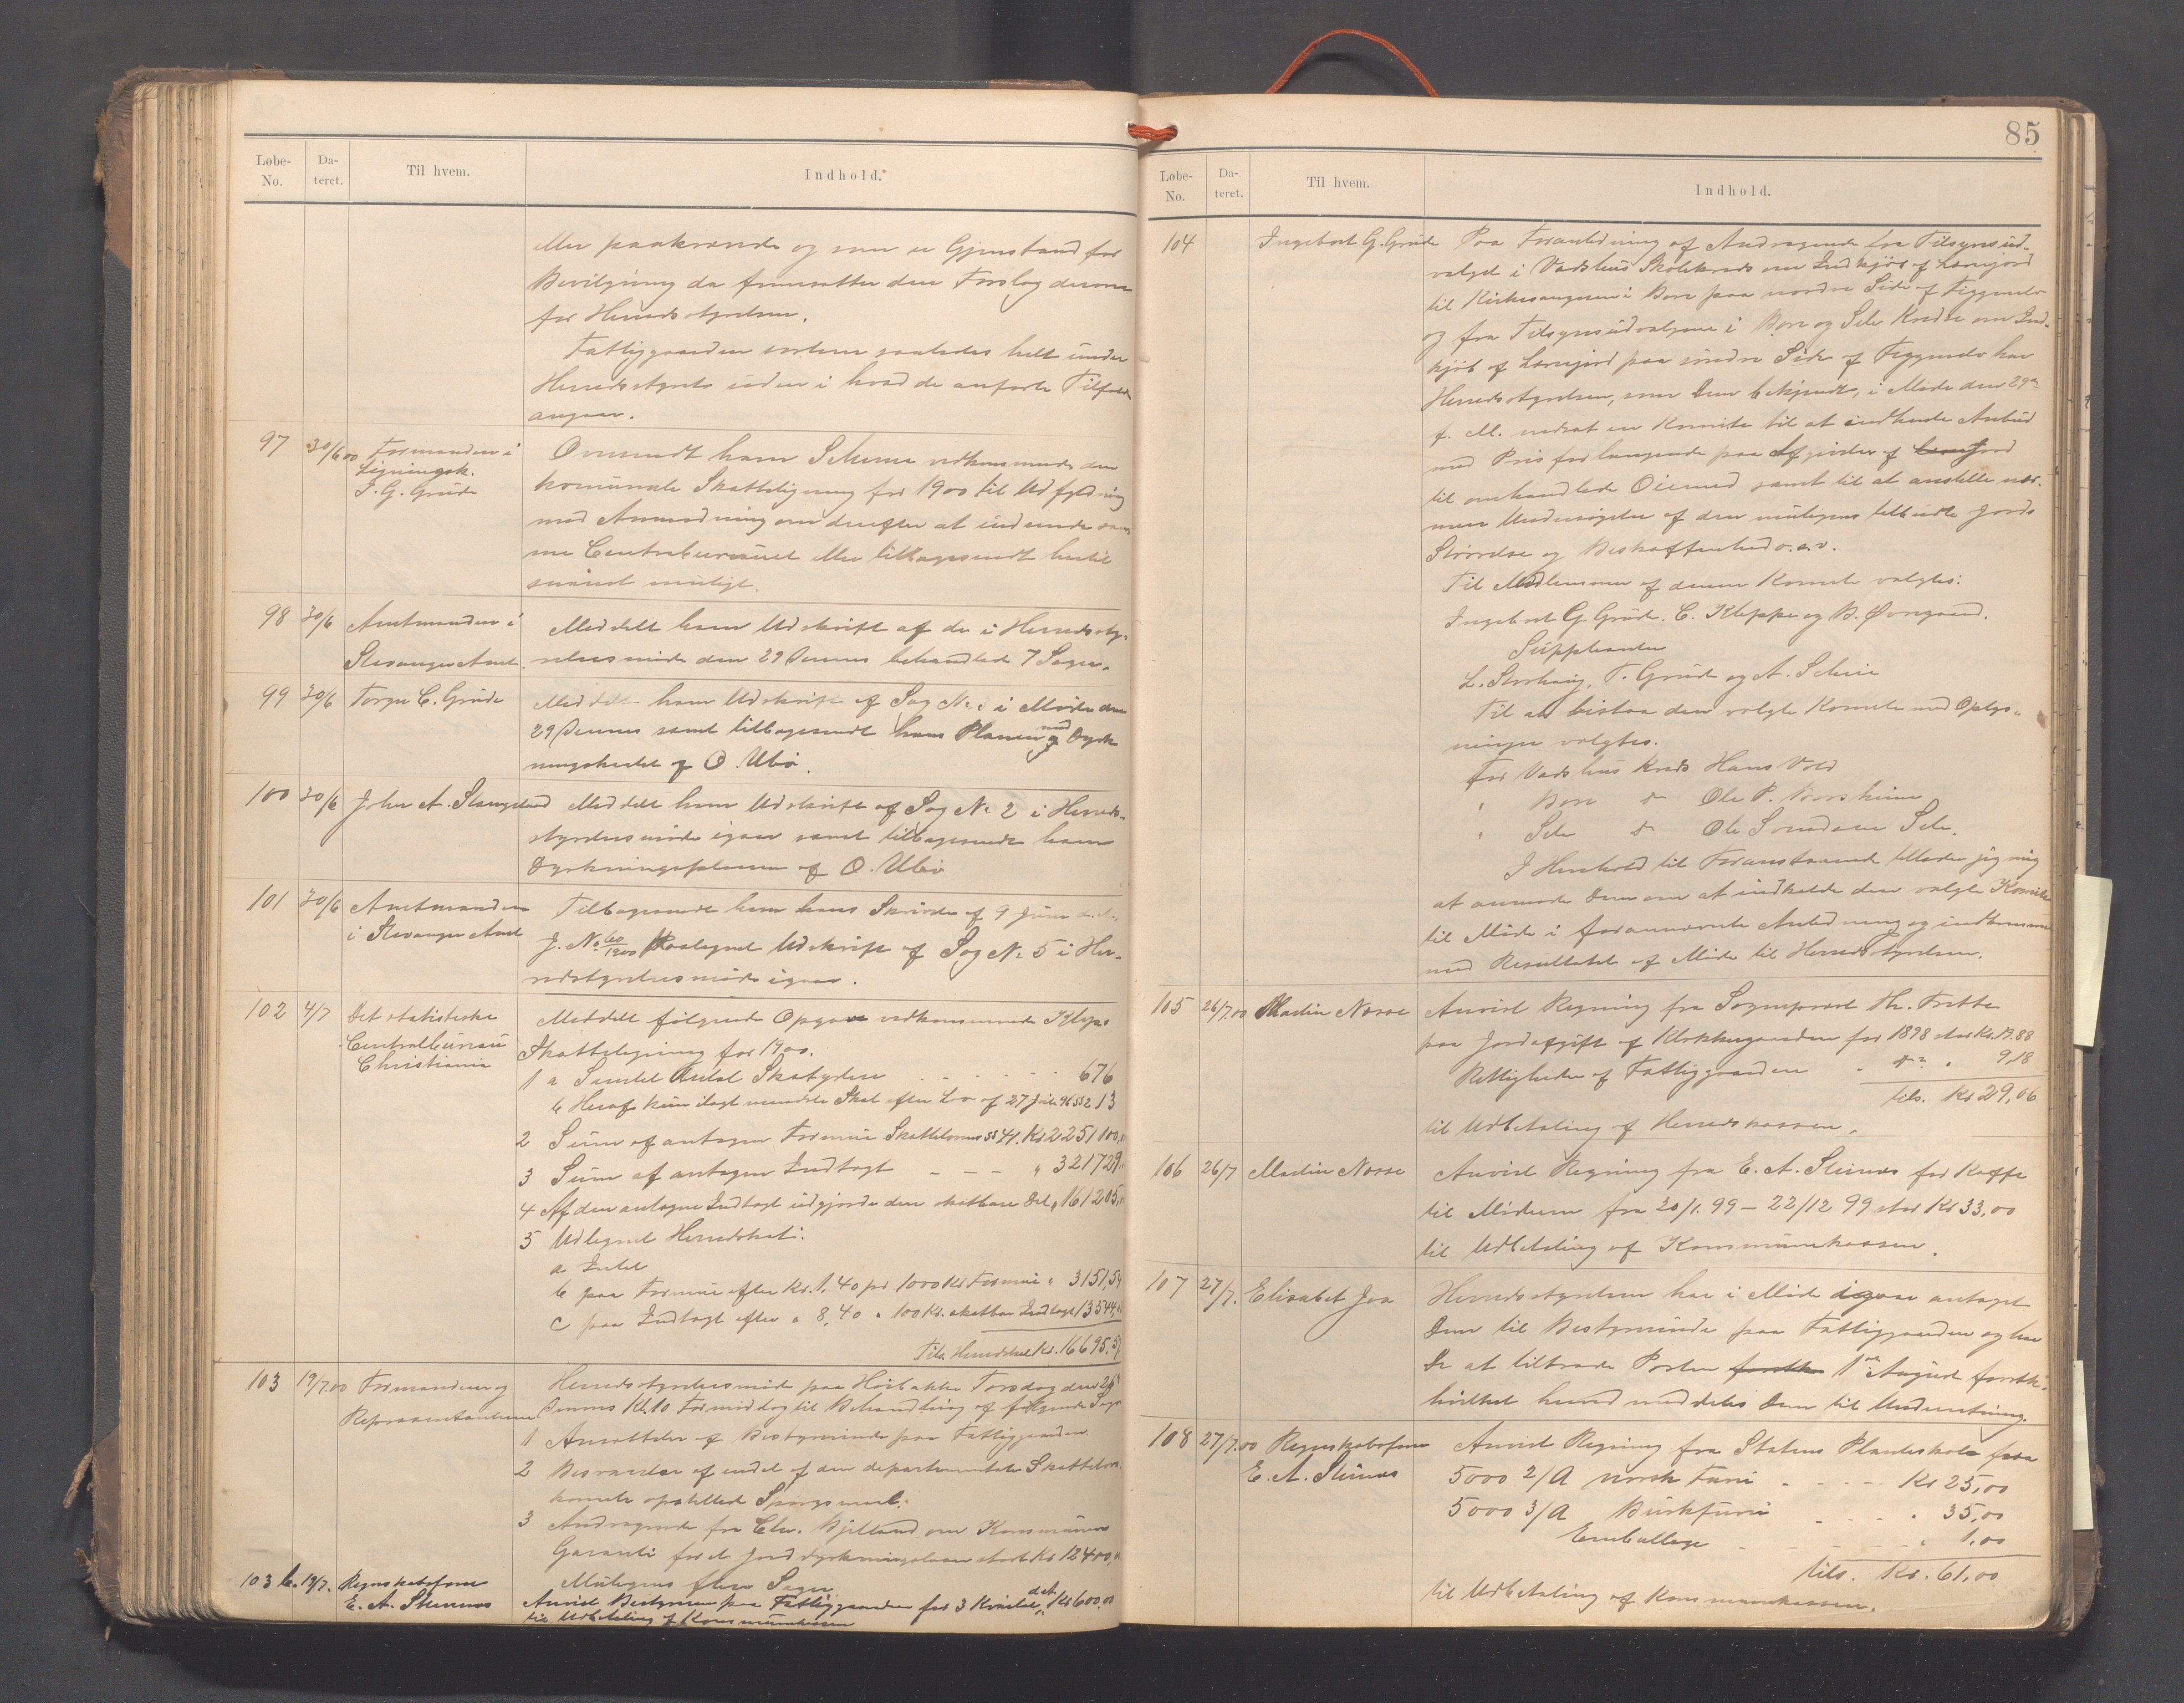 Løbe-
No.
Da-
teret.
Til hvem.
Indhold.
eller paakrævende og som er Gjenstand for
Bevilgning da fremsætter den Forslag derom
for Herredsstyrelsen.
Fattiggaarden sorterer saaledes helt under
Herredsstyret uden i hvad de anførte Tilfælde
angaar.
97 30/6 00 Formanden i
Ligningsk.
I. G. Grude
Oversendt ham Schema vedkommende den
kommunale Skatteligning for 1900 til Udfyldning
med Anmodning om derefter at indsende sam-
me Centralbureauet eller tilbagesendt hertil
snarest muligt.
98 30/6 Amtmanden i
Stavanger Amt.
Meddelt ham Udskrift af de i Herredssty-
relsesmøde den 29 Dennes behandlede 7 Sager.
99 30/6 Torger C. Grude
Meddelt ham Udskrift af Sag No. 1 i Møde den
29 Dennes samt tilbagesendt ham Planen med Dyrk
ningskartet af O. Ubø.
100 30/6 John A. Stangeland
Meddelt ham Udskrift af Sag No 2 i Herreds-
styrelsesmøde igaar samt tilbagesendt ham
Dyrkningsplanen af O. Ubø
101 30/6 Amtmanden
i Stavanger Amt
Tilbagesendt ham hans Skrivelse af 9 Juni d.A.
J. No. 60/1900 Paategnet Udskrift af Sag No 5 i Her-
redsstyrelsesmøde igaar.
102 4/7 Det statistiske
Centralbureau
Christiania
Meddelt følgende Opgave vedkommende Kleps
Skatteligning for 1900.
1 a Samlet Antal Skatydere 676
b Heraf kun ilagt mindste Skat efter Lov af 27 Juli 96 §§2 13
2 Sum af antagen Formue Skattelovens §§ 41. Kr 2251100,
3 Sum af antagen Indtægt - - - " 321729,
4 Af den antagne Indtægt udgjorde den skatbare Del " 161205,
5 Udlignet Herredskat:
a Intet
b paa Formue efter Kr. 1,40 pr. 1000 Kr Formue " 3151,54
c paa Indtægt efter " 8,40 " 100 Kr. skatbar Indtægt 13544,
Tils. Herredskat Kr. 16695,5
103 19/7.00 Formanden og
Repræsentanterne
Herredsstyrelsesmøde paa Høibakke Torsdag den 26
Dennes Kl. 10 Formiddag til Behandling af følgende Sager
1 Ansættelse af Bestyrerinde paa Fattiggaarden.
2 Besvarelse af endel af den departementale Skattelov
komite opstillede Spørgsmaal.
3 Andragende fra Chr. Bjelland om Kommunens
Garanti for et Jorddyrkningslaan stort Kr 12400,
Muligens flere Sager
103 b. 19/7. Regnskabsfører
E. A. Steinnes
Anvist Bestyreren paa Fattiggaarden for 3 Kvartal d.A. Kr 600,00
til Udbetaling af Kommunekassen
85
Løbe-
No.
Da-
teret.
Til hvem.
Indhold.
104 Ingebret G. Grude
Paa Foranledning af Andragende fra Tilsynsud-
valget i Vadshus Skolekreds om Indkjøb af Lærerjord
til Kirkesangeren i Bore paa nordre Side af Figgenelv
og fra Tilsynsudvalgene i Bore og Sele Kredse om Ind-
kjøb af Lærerjord paa søndre Side af Figgenelv har
Herredsstyrelsen, som Dem bekjendt, i Møde den 29de
f. M. nedsat en Komite til at indhente Anbud
med Prisforlangende paa Afgivelse af Lærerjord
til omhandlede Øiemed samt til at anstille nær-
mere Undersøgelse af den muligens tilbudte Jords
Størrelse og Beskaffenhed o.s.v.
Til Medlemmer af denne Komite valgtes:
Ingebret G. Grude. C. Kleppe og B. Øvregaard.
Suppleanter
L. Storhaug, T. Grude og A. Scheie
Til at bistaa den valgte Komite med Oplys-
ninger valgtes.
For Vadshus Kreds Hans Vold
" Bore do Ole P. Voorsheim
" Sele do Ole Svendsen Sele.
I Henhold til Foranstaaende tillader jeg mig
at anmode Dem om at indkalde den valgte Komite
til Møde i forannævnte Anledning og indkomme
med Resultatet af Møde til Herredsstyrelsen.
105 26/7.00 Martin Næsse
Anvist Regning fra Sogneprest Hr. Tratte
paa Jordafgift af Klokkergaarden for 1898 stor Kr. 19.88
Rettigheder af Fattiggaarden " do " 9,18
tils. Kr 29,06
til Udbetaling af Herredskassen.
106 26/7 Martin Næsse
Anvist Regning fra E. A. Steinnes for Kaffe
til Møderne fra 20/1. 99 – 22/12 99 stor Kr 33,00
til Udbetaling af Kommunekassen.
107 27/7. Elisabet Joa
Herredsstyrelsen har i Møde igaar antaget
Dem til Bestyrerinde paa Fattiggaarden og har
De at tiltræde Posten 1ste August førstk.
hvilket herved meddeles Dem til Underretning.
108 27/7.00 Regnskabsfører
E. A. Steinnes
Anvist Regning fra Statens Planteskole paa
5000 2/A norsk Furu - - - Kr 25,00
5000 3/A Buskfuru - - - " 35,00
Emballage - - - " 1,00
tils. Kr. 61,00
til Udbetaling af Kommunekassen.